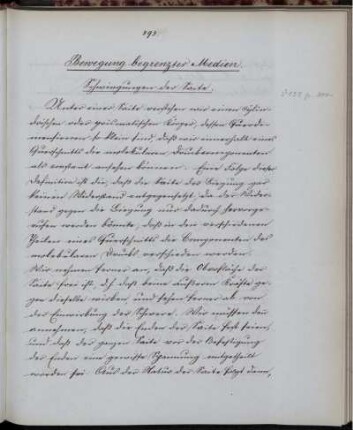 191.
Bewegung begrenzter Medien.
Schwingungen der Saite.
Unter einer Saite verstehen wir einen cylin-
drischen oder prismatischen Körper, dessen Querdi-
mensionen so klein sind, daß wir innerhalb eines
Querschnitts die molekularen Druckcomponenten
als constant ansehen können. – Eine Folge dieser
Definition ist die, daß die Saite der Biegung gar
keinen Widerstand entgegensetzt, da der Wider-
stand gegen die Biegung nur dadurch hervorge-
rufen werden könnte, daß in den verschiedenen
Theilen eines Querschnitts die Componenten des
molekularen Drucks verschieden werden.
Wir nehmen ferner an, daß die Oberfläche der
Saite frei ist, d. h. daß keine äußeren Kräfte ge-
gen dieselbe wirken und sehen ferner ab von
der Einwirkung der Schwere. Wir müssen nun
annehmen, daß die Enden der Saite fest seien,
und daß der ganzen Saite vor der Befestigung
der Enden eine gewisse Spannung mitgetheilt
worden sei. Aus der Natur der Saite folgt dann,